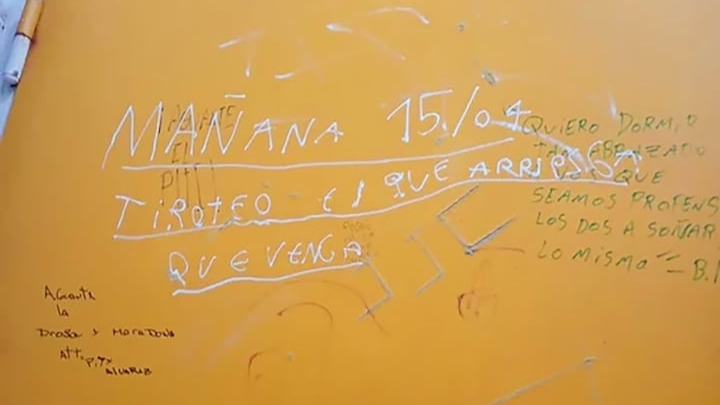 MAÑANA 15/04
TIROTEO EL QUE ARRIESGA
QUE VENGA
AGUANTE
EL
QUIERO DORMIR
TAN ABRAZADO
QUE
SEAMOS PROPENS
LOS DOS A SOÑAR
LO MISMO" - B.
Aguante
la
Droga y Maradona
Att:
ALVAREZ